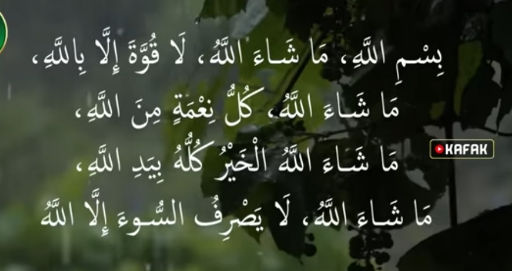 بِسْمِ اللَّهِ، مَا شَاءَ اللَّهُ، لَا قُوَّةَ إِلَّا بِاللَّهِ،
مَا شَاءَ اللَّهُ، كُلُّ نِعْمَةٍ مِنَ اللَّهِ،
مَا شَاءَ اللَّهُ الْخَيْرُ كُلُّهُ بِيَدِ اللَّهِ،
KAFAK
مَا شَاءَ اللَّهُ، لَا يَصْرِفُ السُّوءَ إِلَّا اللَّهُ